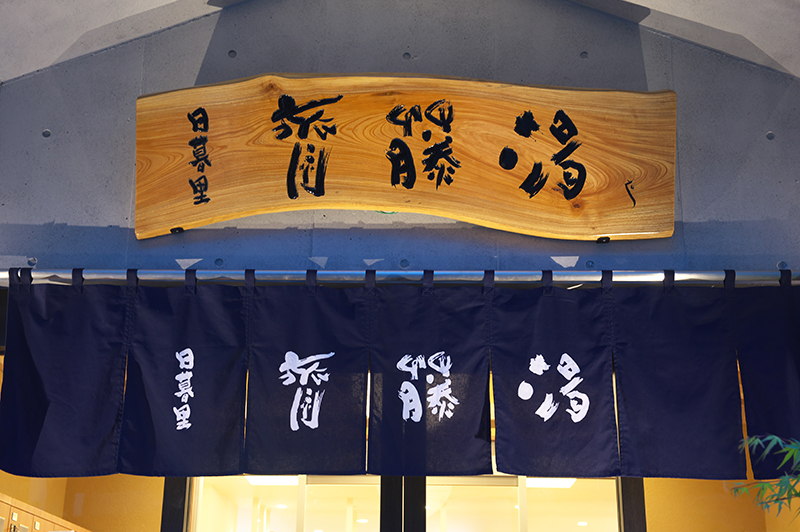 日暮里 齊藤湯
日暮里 齊藤湯